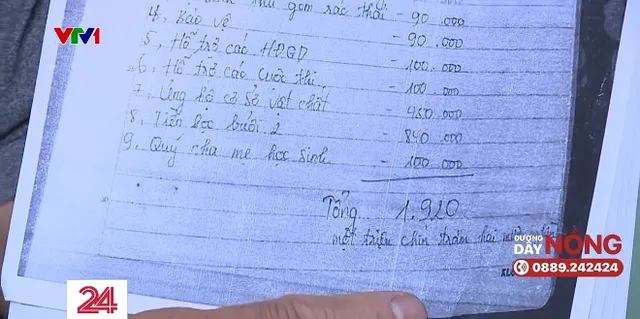 VTV1
gom rác thải - 90.000
4, Bảo vệ - 90.000
5, Hỗ trợ các HĐGD - 100.000
6. Hỗ trợ các cuộc thi - 100.000
7, Ủng hộ cơ sở vật chất - 450.000
8, Tiền học buổi 2 - 840.000
9. Quỹ cha mẹ học sinh - 100.000
Tổng 1.920
một triệu chín trăm hai
ĐƯỜNG DÂY NÓNG
0889.242424
24